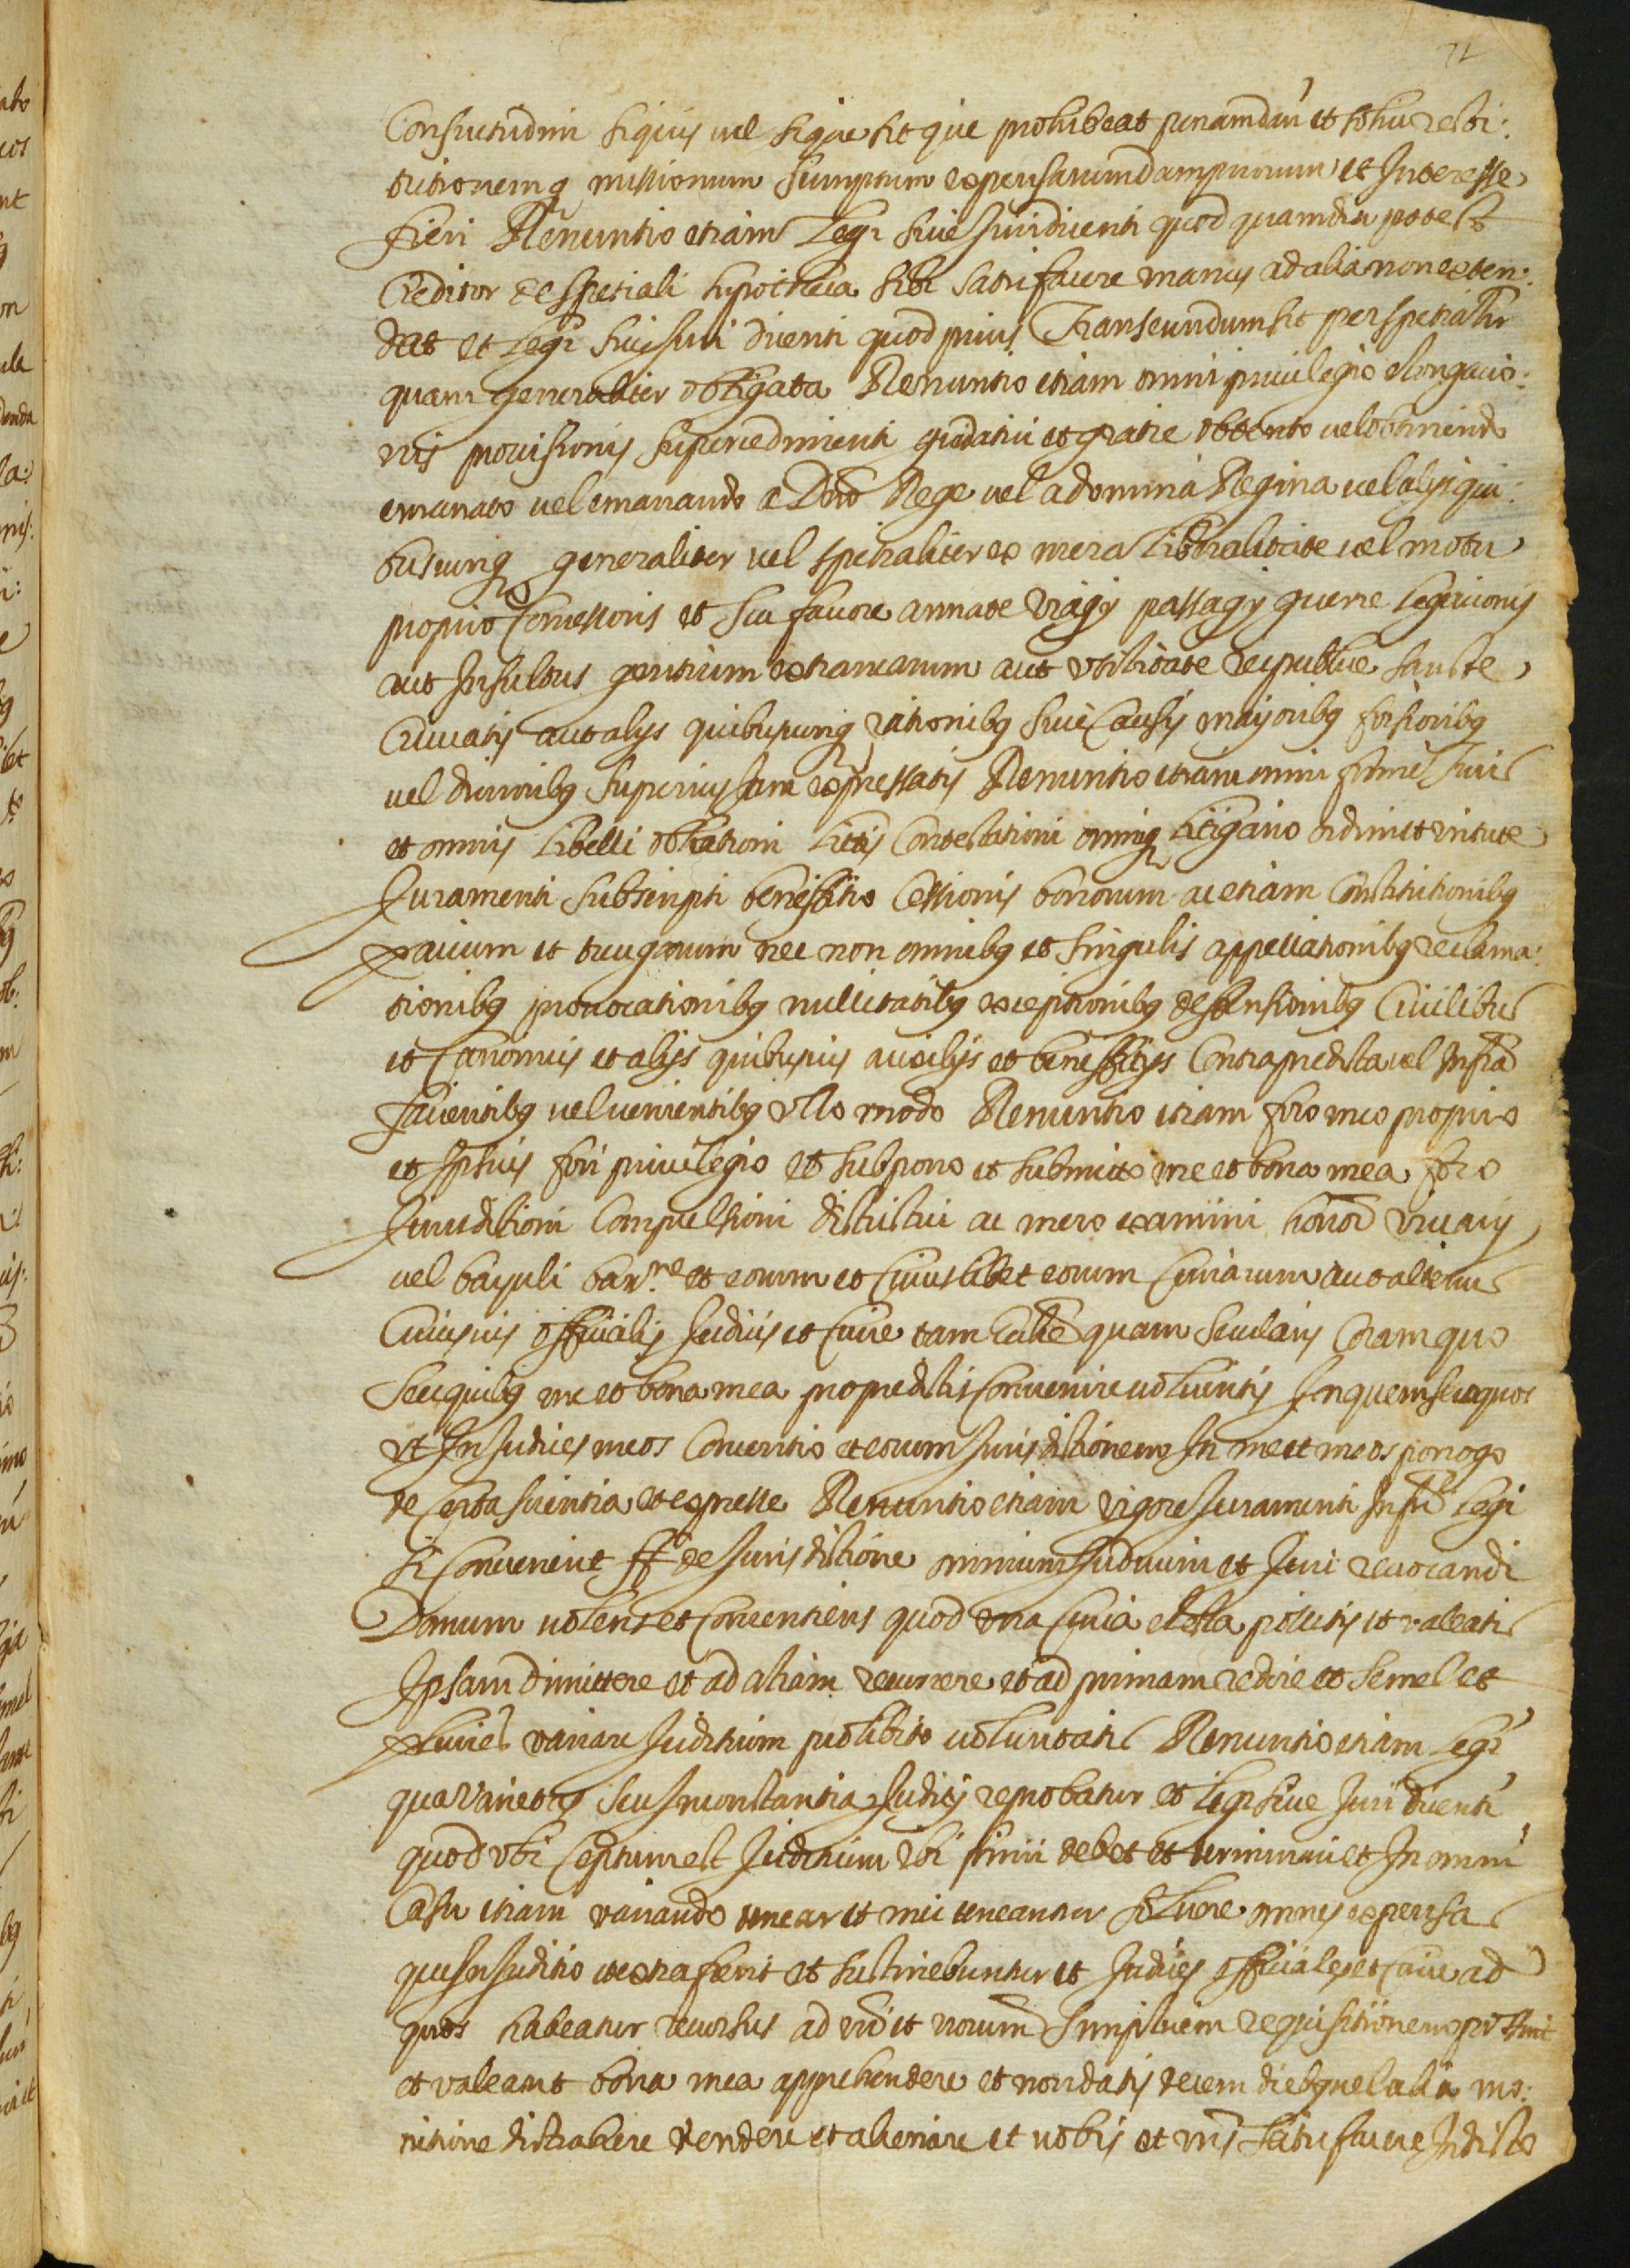 72
Consuetudini siquis vel sique sit que prohibeat penam dari et solui resti:
tutionemq missionum sumptuum expensarum dampnorum et Interesse
fieri Renuntio etiam Legi siue Juri dicenti quod quamdiu potest
Creditor de spetiali hypotheca sibi satisfacere manus ad alia non exten:
dat et Legi siue Juri dicenti quod prius Transeundum sit per spetialr
quam generaliter obligata Renuntio etiam omni priuilegio elongacio:
nis prouisionis supercedimenti guidatici et gratie obtento vel obtinendo
emanato vel emanando a Dno Rege vel a domina Regina vel alijs qui:
buscunq generaliter vel spetialiter ex mera Liberalitate vel motu
proprio Concessoris et seu fauore armate viagij passagij guerre Legacionis
aut Insultus gentium extranearum aut vtilitate reipublice sancte
Cruciatis aut alijs quibuscunq rationibq siue Causis maijoribq fortioribq
vel durioribq superius Jam expressatis Renuntio etiam omni fermie Juris
et omnis Libelli oblationi Littis Contestationi omniq Litigatorio ordini et virtute
Juramenti subscripti benefitio Cessionis bonorum ac etiam Constitutionibq
pacium et treugarum nec non omnibq et singulis appellationibq reclama:
tionibq prouocationibq nullitatibq exceptionibq defensionibq Ciuilibus
et Canonicis et alijs quibusuis auxilijs et benefitijs Contra predicta vel Infra
facientibq vel venientibq vllo modo Renuntio etiam foro meo proprio
et Ipsius fori priuilegio et subpono et submitto me et bona mea foro
Jurisdictioni Compulsioni districtui ac mero examini honor vicarij
vel bajuli barne et eorum et Cuiuslibet eorum Curiarum aut alterius
Cuiusuis officialis Judicis et Curie tam Eccle quam secularis Coram quo
seu quibq me et bona mea pro predictis Conuenire volueritis In quem seu quos
vt In Judices meos Consentio et eorum Jurisdictionem In me et meos prorogo
de Certa scientia et expresse Renuntio etiam vigore Juramenti Infri Legi
si Conuenerit ff de Jurisdictione omnium Judicum et Juri reuocandi
Domum volens et Consentiens quod vna Curia electa possitis et valeatis
Ipsam dimittere et ad aliam recurrere et ad primam redire et semel et
pluries variare Juditium pro libito voluntatis Renuntio etiam Legi
qua varietas seu Inconstantia Juditij reprobatur et Legi siue Juri dicenti
quod vbi Ceptum est Juditium Ibi finiri debet et terminari et In omni
Casu etiam variando tenear et mei teneantur soluere omnes expensas
que In Juditio et extra fient et sustinebuntur et Judices officiales et Curie ad
quos habeatur recursus ad vri et vrorum simplicem requisitionem possint
et valeant bona mea apprehendere et non datis decem diebq vel alia mo:
nitione distrahere vendere et alienare et vobis et vris satisfacere In dicto